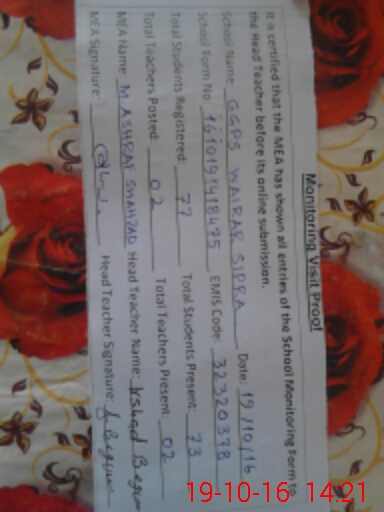 Monitoring Visit Proof
It is certified that the MEA has shown all entries of the School Monitoring Form to
the Head Teacher before its online submission.
School Name: GGPS WAIRAR SIDRA Date: 19/10/16
School Form No: 1610191418475 EMIS Code: 32320398
Total Students Registered: 77 Total Students Present: 73
Total Teachers Posted: 02 Total Teachers Present: 02
MEA Name: M ASHRAF SHAHZAD Head Teacher Name: Irshad Begum
MEA Signature: Head Teacher Signature: Begum
19-10-16 14:21